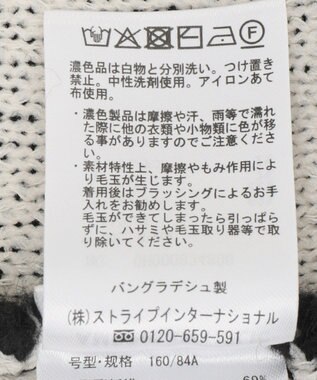 濃色品は白物と分別洗い。つけ置き
禁止。中性洗剤使用。アイロンあて
布使用。
・濃色製品は摩擦や汗、雨等で濡れ
た際に他の衣類や小物類に色が移
る事がありますのでご注意くださ
い。
・素材特性上、摩擦やもみ作用によ
り毛玉が生じます。
着用後はブラッシングによるお手
入れをお勧めします。
毛玉ができてしまったら引っぱら
ずに、ハサミや毛玉取り器等で取
り除いてください。
バングラデシュ製
(株)ストライプインターナショナル
0120-659-591
号型·规格 160/84A
60%